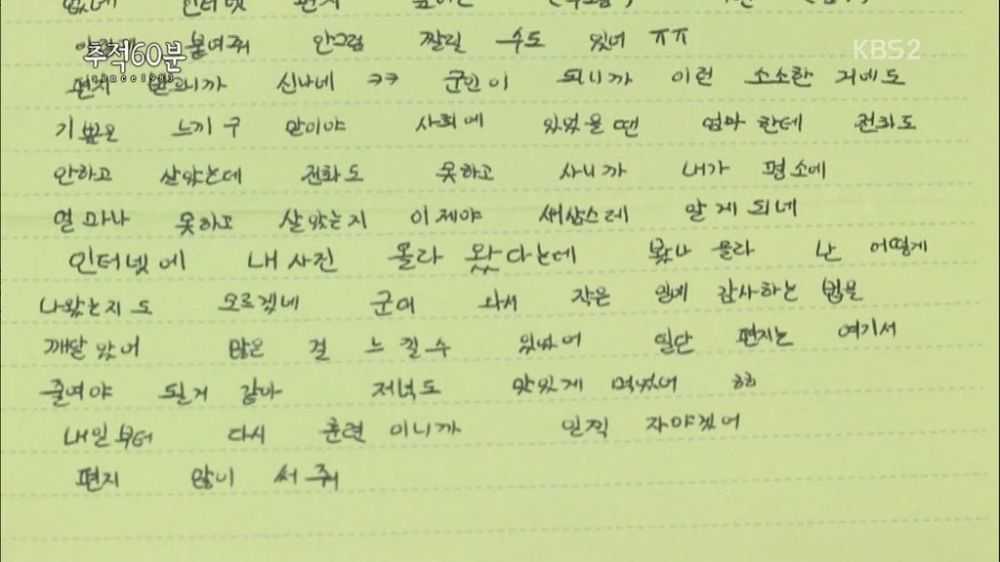 없네 인터넷 편지
붙여줘 안그럼 짤릴 수도 있어 ㅠㅠ
추적60분
since1983
KBS2
편지 받으니까 신나네 ㅋㅋ 군인이 되니까 이런 소소한 거네도
기쁨은 느끼구 말이야 사회에 있었을땐 엄마한데 전화도
안하고 살았는데 전화도 못하고 사니까 내가 평소에
얼마나 못하고 살았는지 이제야 새삼스레 알게되네
인터넷에 내사진 올라 왔다는데 봤나 몰라 난 어떻게
나왔는지도 모르겠네 군대 와서 작은 일에 감사하는 법을
깨달았어 많은 걸 느낄수 있었어 일단 편지는 여기서
줄여야 될거 같아 저녁도 맛있게 먹었어 ㅎㅎ
내일부터 다시 훈련이니까 일찍 자야겠어
편지 많이 써줘